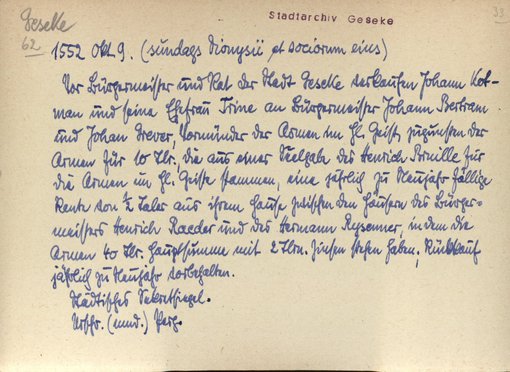 Geseke
62
Stadtarchiv Geseke
33
1552 Okt 9. (sundags Dionysii et sociorum eius)
Vor Bürgermeister und Rat der Stadt Geseke verkaufen Johann Kot-
man und seine Ehefrau Trine an Bürgermeister Johann Bertram
und Johan Drever, Vormünder der Armen im Hl. Geist zugunsten der
Armen für 10 Tlr., die aus einer Seelgabe des Henrich Prville für
die Armen im Hl. Geiste stammen, eine jährlich zu Neujahr fällige
Rente von ½ Taler aus ihrem Hause zwischen den Häusern des Bürger-
meisters Henrich Raeder und des Hermann, in dem die
Armen 40 Tlr. Hauptsumme mit 2 Tlrn. Zinsen stehen haben, Rückkauf
jährlich zu Neujahr vorbehalten.
Städtisches Sekretsiegel.
Urschr. (mnd.) Perg.